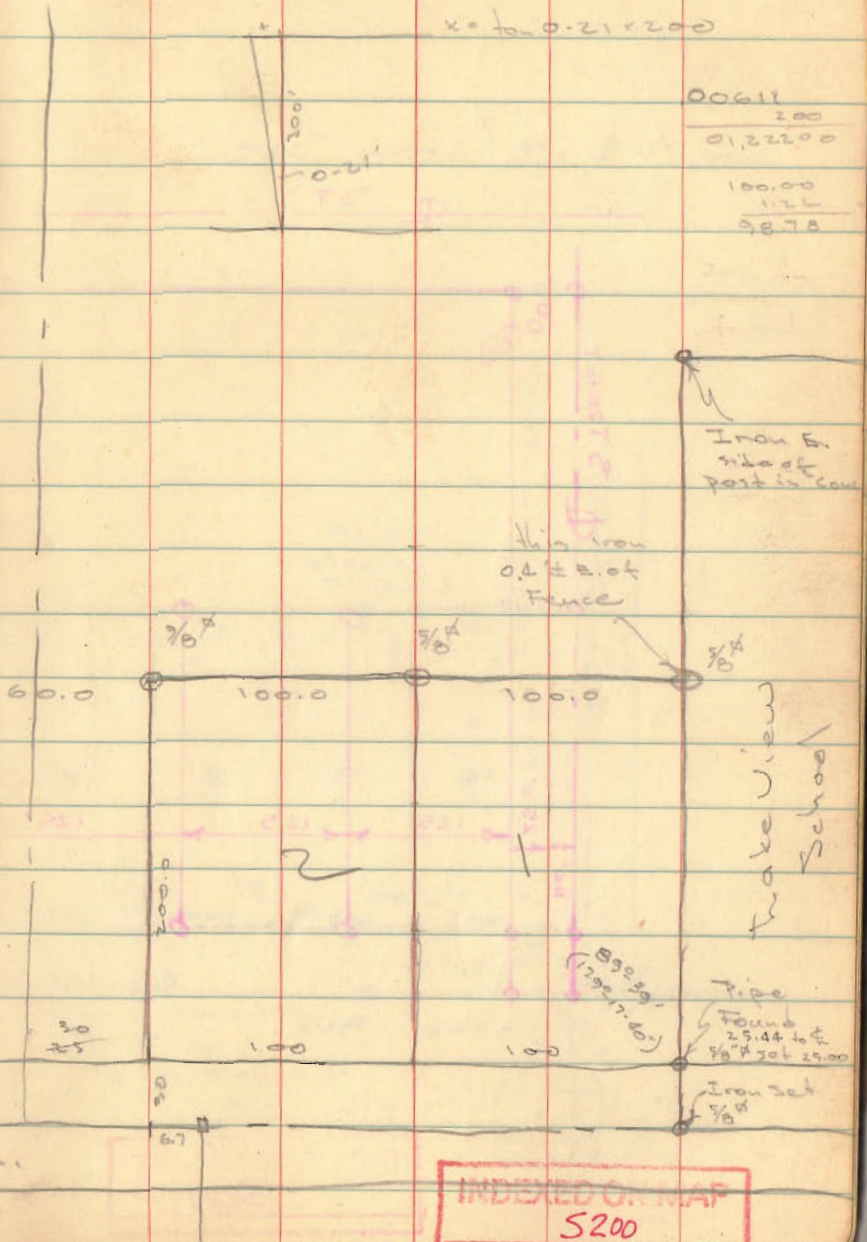 x = tan 0-21 × 200
200'
0-21'
00611
200
01,22200
100.00
1.22
98.78
Iron E.
side of
post in conc
thin iron
0.1 ± E. of
Fence
5/8"ϕ
5/8"ϕ
5/8"ϕ
60.0
100.0
100.0
Lake View
School
200.0
2
1
89° 39'
Pipe
Found
25.44 to ℄
5/8"ϕ set 25.00
100
100
30
Iron set
5/8"ϕ
6.7
INDEXED ON MAP
S200